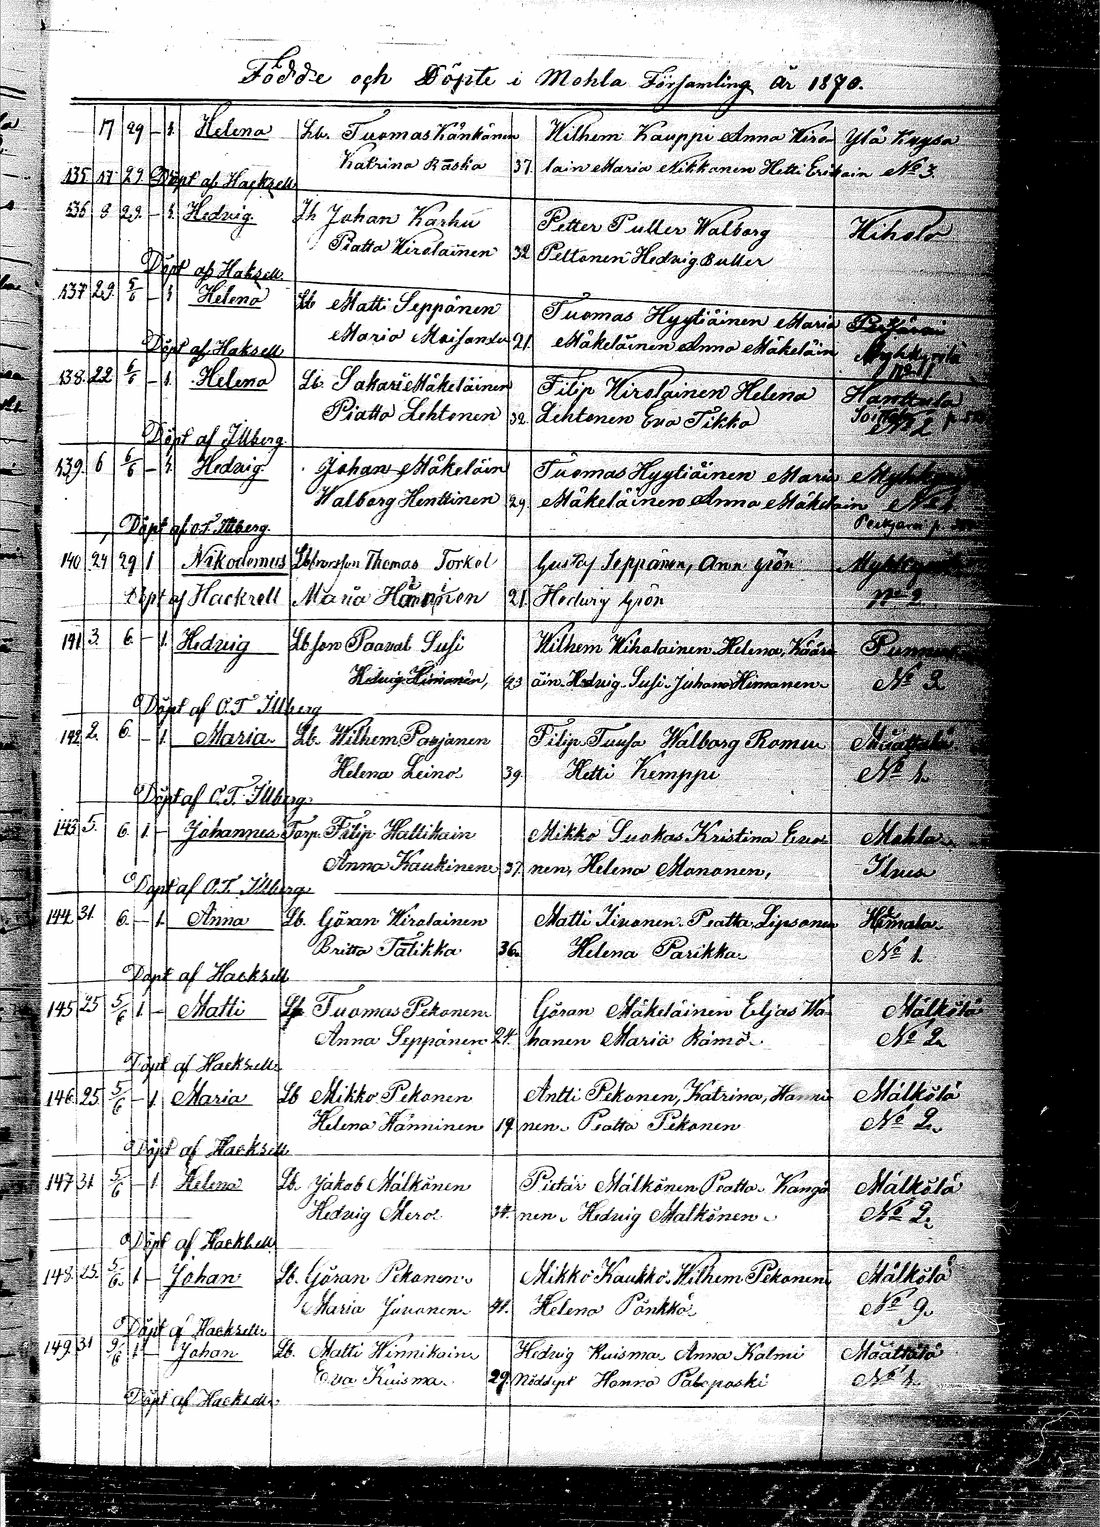 Födde och Döpte i Mohla Församling År 1870.
17 29 – 1. Helena Lb. Tuomas Känkänen Wilhem Kauppi Anna Hiro- Ylä Kuusa
Katrina Räska 37. lain Maria Nikkanen Hetti Erikain No 3.
135 17 29 Döpt af Hacksell
136 9 29 – 1. Hedvig Johan Karhu Petter Puller Walborg Wihola
Piatta Hirolainen 32 Peltonen Hedvig Buller
Döpt af Haksell
137 29 5/6 – 1. Helena Lb Matti Seppänen Tuomas Hyytiäinen Maria
Maria 21. Mäkeläinen Anna Mäkeläin Myhkyrälä
Döpt af Haksell
138. 22 6/6 – 1. Helena Lb. Sakari Mäkeläinen Filip Hirolainen Helena Hanttula
Piatta Lehtonen 32. Lehtonen Eva Tikka
Döpt af Illberg.
139. 6 6/6 – 1. Hedvig Johan Mäkeläin Tuomas Hyytiäinen Maria
Walborg Henttinen 29. Mäkeläinen Anna Mäkeläin No 1.
Döpt af O.T. Illberg.
140 24 29 1 Nikodemus Thomas Torkel Gustaf Seppänen, Ann Grön
Döpt af Hacksell Maria 21. Hedwig Grön No 2.
141 3. 6. – 1. Hedvig Lb son Paaval Susi Wilhem Wiholainen Helena, Kääri-
Hedvig Himanen, 23 äin Hedvig Susi Juhana Himanen No 3
Döpt af O.T Illberg
142 2. 6. – 1. Maria Lb. Wilhem Parjanen Filip Tuusa Walborg Romu Määttälä
Helena Leino 39. Hetti Kemppi No 1.
Döpt af O.T. Illberg
143 5. 6. 1. – Johannes Torp. Filip Hattikain Mikko Suokas Kristina Evo- Mohla
Anna Kaukinen 37. nen, Helena Mononen,
Döpt af O.T. Illberg
144 31. 6. – 1. Anna Lb. Göran Hirolainen Matti Iivonen Piatta Lipsonen
Britta Tälikka 36. Helena Parikka No 1.
Döpt af Hacksell
145 25 5/6 1 – Matti Tuomas Pekonen Göran Mäkeläinen Eljas Wa- Mälkölä
Anna Seppänen 24. hanen Maria Rämö No 2.
Döpt af Hacksell.
146. 25 5/6 – 1. Maria Lb Mikko Pekonen Antti Pekonen, Katrina, Hänni Mälkölä
Helena Hänninen 19 nen Piatta Pekonen No 2.
Döpt af Hacksell
147 31 5/6 – 1. Helena Lb. Jakob Mälkönen Pietär Mälkönen Piatta Kangä Mälkölä
Hedvig Mero 34. nen Hedvig Mälkönen No 2.
Döpt af Hacksell
148 23. 5/6. 1 – Johan Lb. Göran Pekonen Mikko Kaukko Wilhem Pekonen Mälkölä
Maria Jivonen 41. Helena Pönkkö No 9.
Döpt af Hacksell.
149. 31 9/6 1 – Johan Lb. Matti Hinnikain Hedvig Kuisma Anna Kalmi Määttälä
Eva Kuisma 29. Nöddöpt Hanna No 1.
Döpt af Hacksell